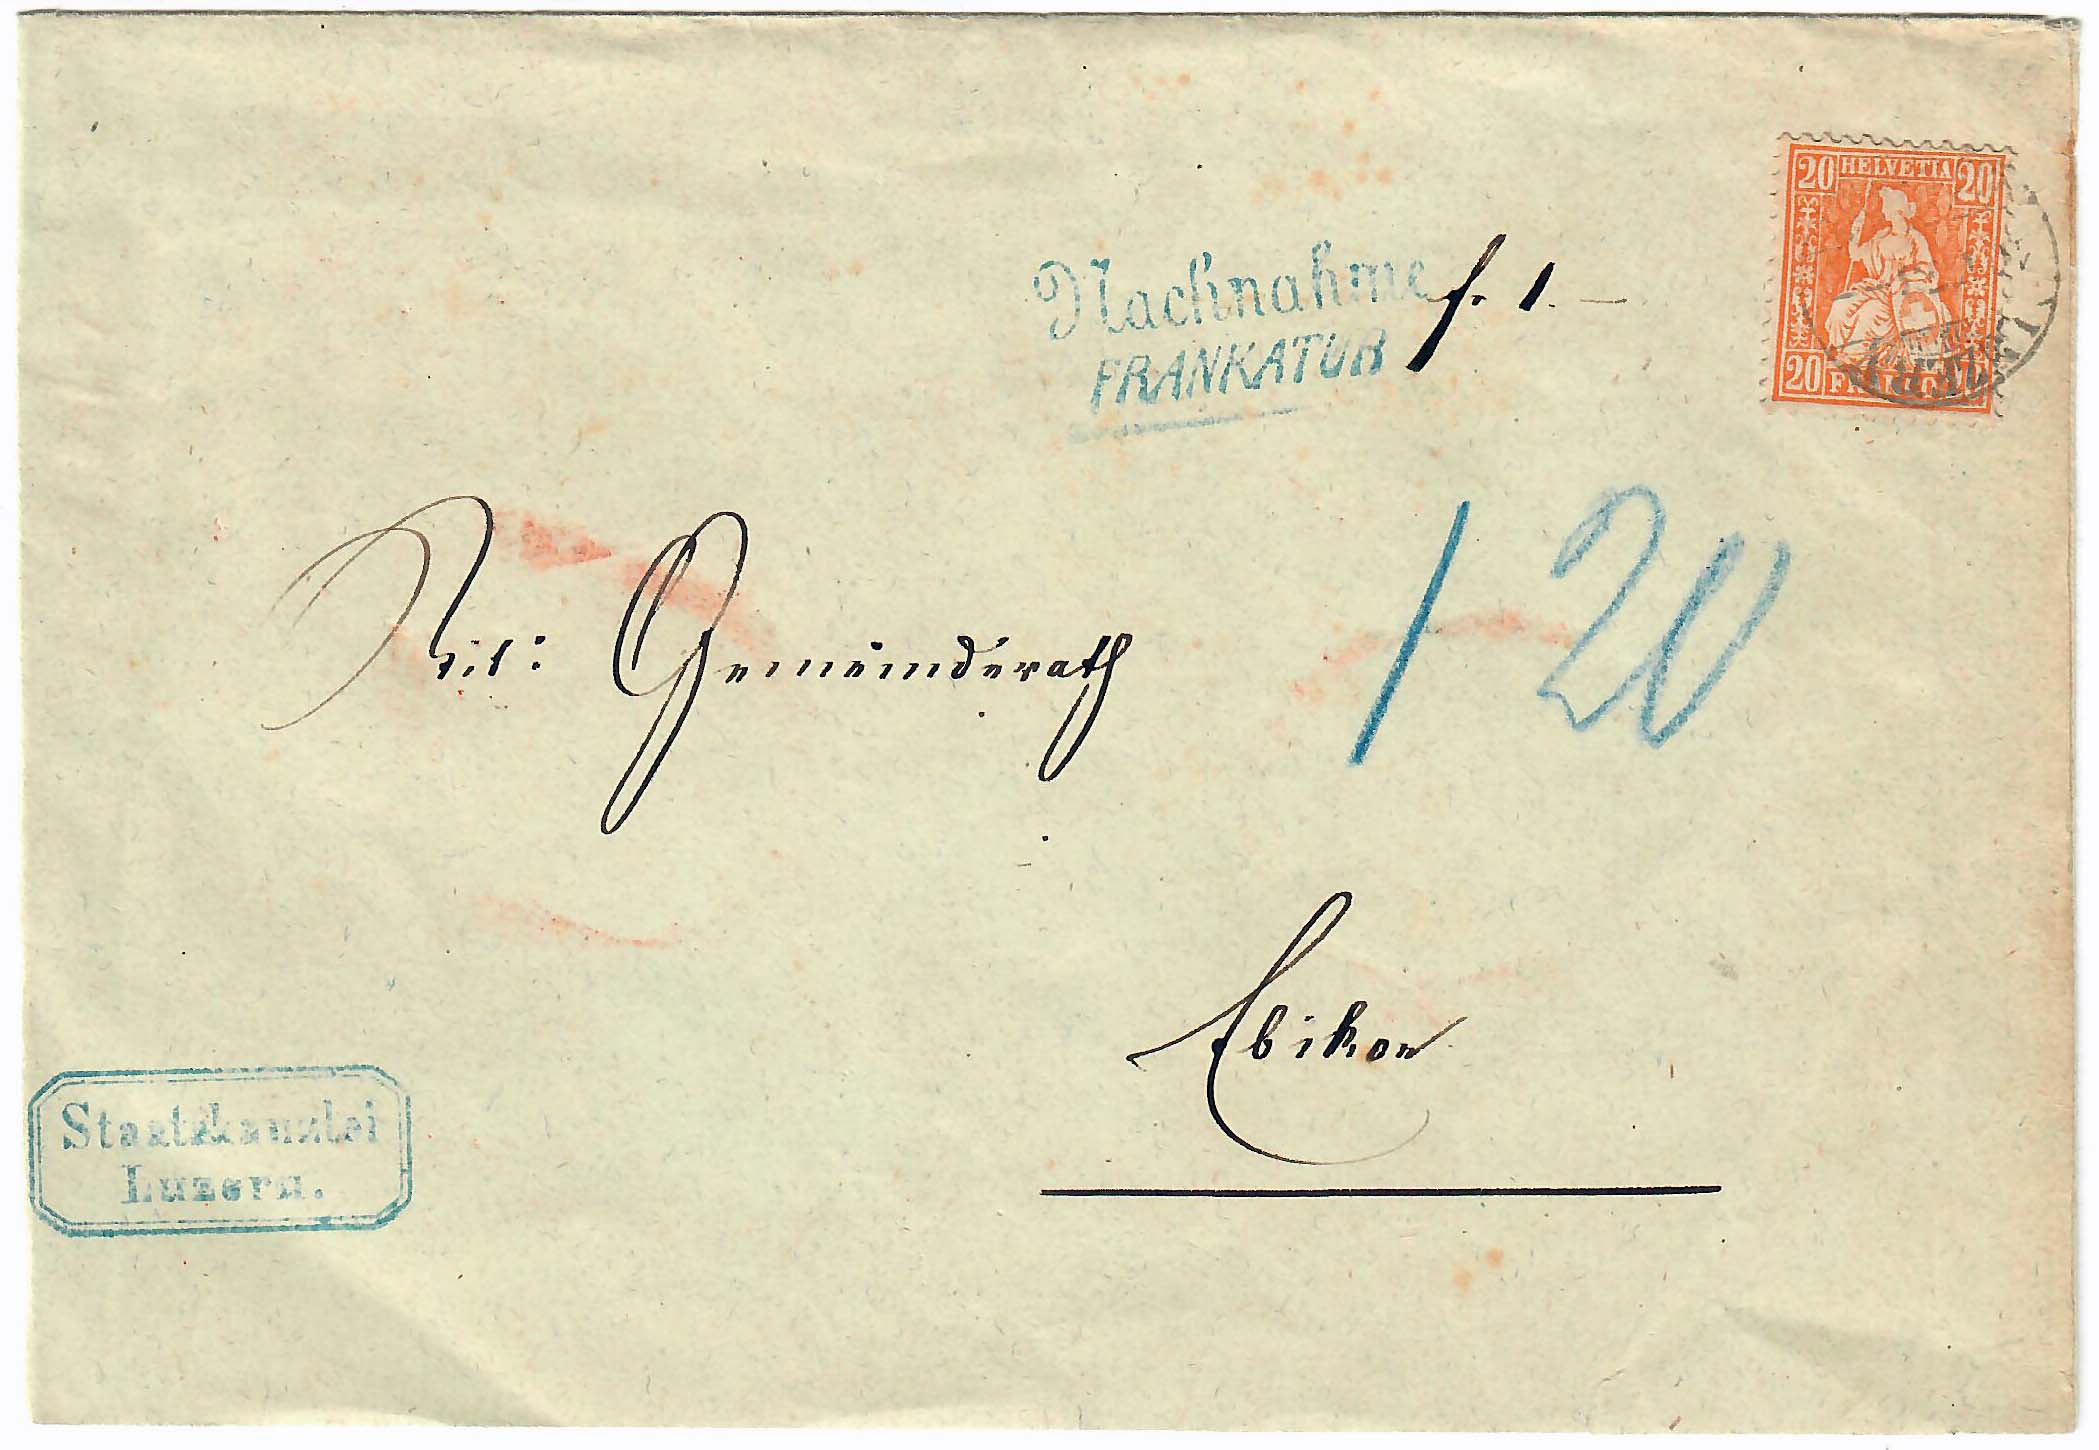 20 HELVETIA 20
20 FRANCO
Nachnahme f. 1. —
FRANKATUR
1 20
Tit: Gemeinderath
Ebikon
Staatskanzlei
Luzern.